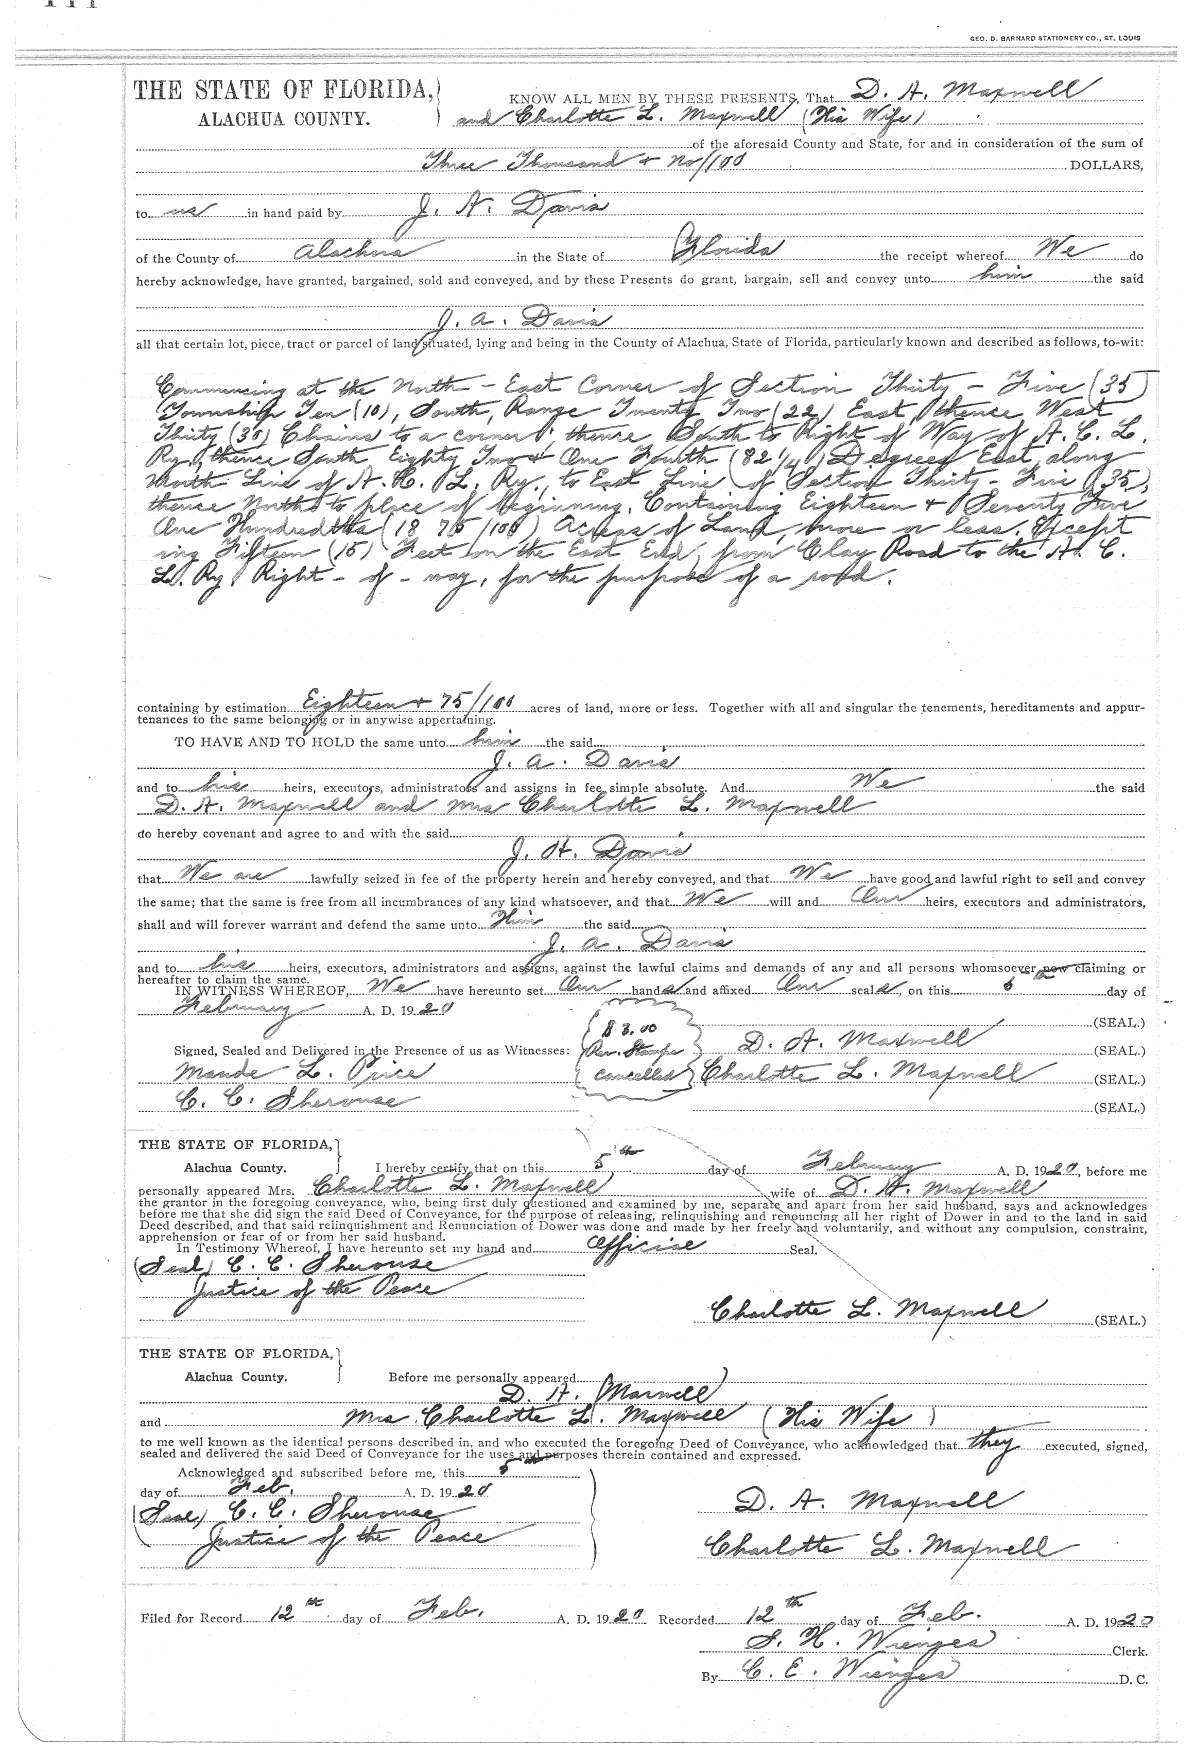 GEO. D. BARNARD STATIONERY CO., ST. LOUIS
THE STATE OF FLORIDA,
ALACHUA COUNTY.
KNOW ALL MEN BY THESE PRESENTS, That D. A. Maxwell
and Charlotte L. Maxwell (His Wife)
of the aforesaid County and State, for and in consideration of the sum of
Three Thousand + No/100 DOLLARS,
to us in hand paid by J. A. Davis
of the County of Alachua in the State of Florida the receipt whereof We do
hereby acknowledge, have granted, bargained, sold and conveyed, and by these Presents do grant, bargain, sell and convey unto him the said
J. A. Davis
all that certain lot, piece, tract or parcel of land situated, lying and being in the County of Alachua, State of Florida, particularly known and described as follows, to-wit:
Commencing at the North - East Corner of Section Thirty - Five (35)
Township Ten (10), South, Range Twenty Two (22) East, thence West
Thirty (30) Chains to a corner, thence South to Right of Way of A. C. L.
Ry, thence South Eighty Two + One Fourth (82 1/4) Degrees East along
North Line of A. C. L. Ry., to East Line of Section Thirty - Five (35),
thence North to place of beginning. Containing Eighteen + Seventy Five
One Hundredths (18 75/100) Acres of Land, more or less. Except
ing Fifteen (15) Feet on the East End, from Clay Road to the A. C.
L. Ry Right - of - way, for the purpose of a road.
containing by estimation Eighteen + 75/100 acres of land, more or less. Together with all and singular the tenements, hereditaments and appur-
tenances to the same belonging or in anywise appertaining.
TO HAVE AND TO HOLD the same unto him the said
J. A. Davis
and to his heirs, executors, administrators and assigns in fee simple absolute. And We the said
D. A. Maxwell and Mrs Charlotte L. Maxwell
do hereby covenant and agree to and with the said
J. A. Davis
that We are lawfully seized in fee of the property herein and hereby conveyed, and that We have good and lawful right to sell and convey
the same; that the same is free from all incumbrances of any kind whatsoever, and that We will and Our heirs, executors and administrators,
shall and will forever warrant and defend the same unto Him the said
J. A. Davis
and to his heirs, executors, administrators and assigns, against the lawful claims and demands of any and all persons whomsoever now claiming or
hereafter to claim the same.
IN WITNESS WHEREOF, We have hereunto set Our hands and affixed Our seals, on this 5 day of
February A. D. 1920
(SEAL.)
$3.00
Signed, Sealed and Delivered in the Presence of us as Witnesses: Rev. Stamps D. A. Maxwell (SEAL.)
Maude L. Price cancelled Charlotte L. Maxwell (SEAL.)
C. C. Sherouse (SEAL.)
THE STATE OF FLORIDA,
Alachua County. I hereby certify that on this 5th day of February A. D. 1920, before me
personally appeared Mrs. Charlotte L. Maxwell wife of D. A. Maxwell
the grantor in the foregoing conveyance, who, being first duly questioned and examined by me, separate and apart from her said husband, says and acknowledges
before me that she did sign the said Deed of Conveyance, for the purpose of releasing, relinquishing and renouncing all her right of Dower in and to the land in said
Deed described, and that said relinquishment and Renunciation of Dower was done and made by her freely and voluntarily, and without any compulsion, constraint,
apprehension or fear of or from her said husband.
In Testimony Whereof, I have hereunto set my hand and Official Seal.
(Seal) C. C. Sherouse
Justice of the Peace
Charlotte L. Maxwell (SEAL.)
THE STATE OF FLORIDA,
Alachua County. Before me personally appeared
D. A. Maxwell
and Mrs Charlotte L. Maxwell (His Wife)
to me well known as the identical persons described in, and who executed the foregoing Deed of Conveyance, who acknowledged that they executed, signed,
sealed and delivered the said Deed of Conveyance for the uses and purposes therein contained and expressed.
Acknowledged and subscribed before me, this 5th
day of Feb. A. D. 1920
(Seal) C. C. Sherouse
Justice of the Peace
D. A. Maxwell
Charlotte L. Maxwell
Filed for Record 12th day of Feb. A. D. 1920 Recorded 12th day of Feb. A. D. 1920
S. H. Wienges Clerk.
By C. E. Wienges D. C.